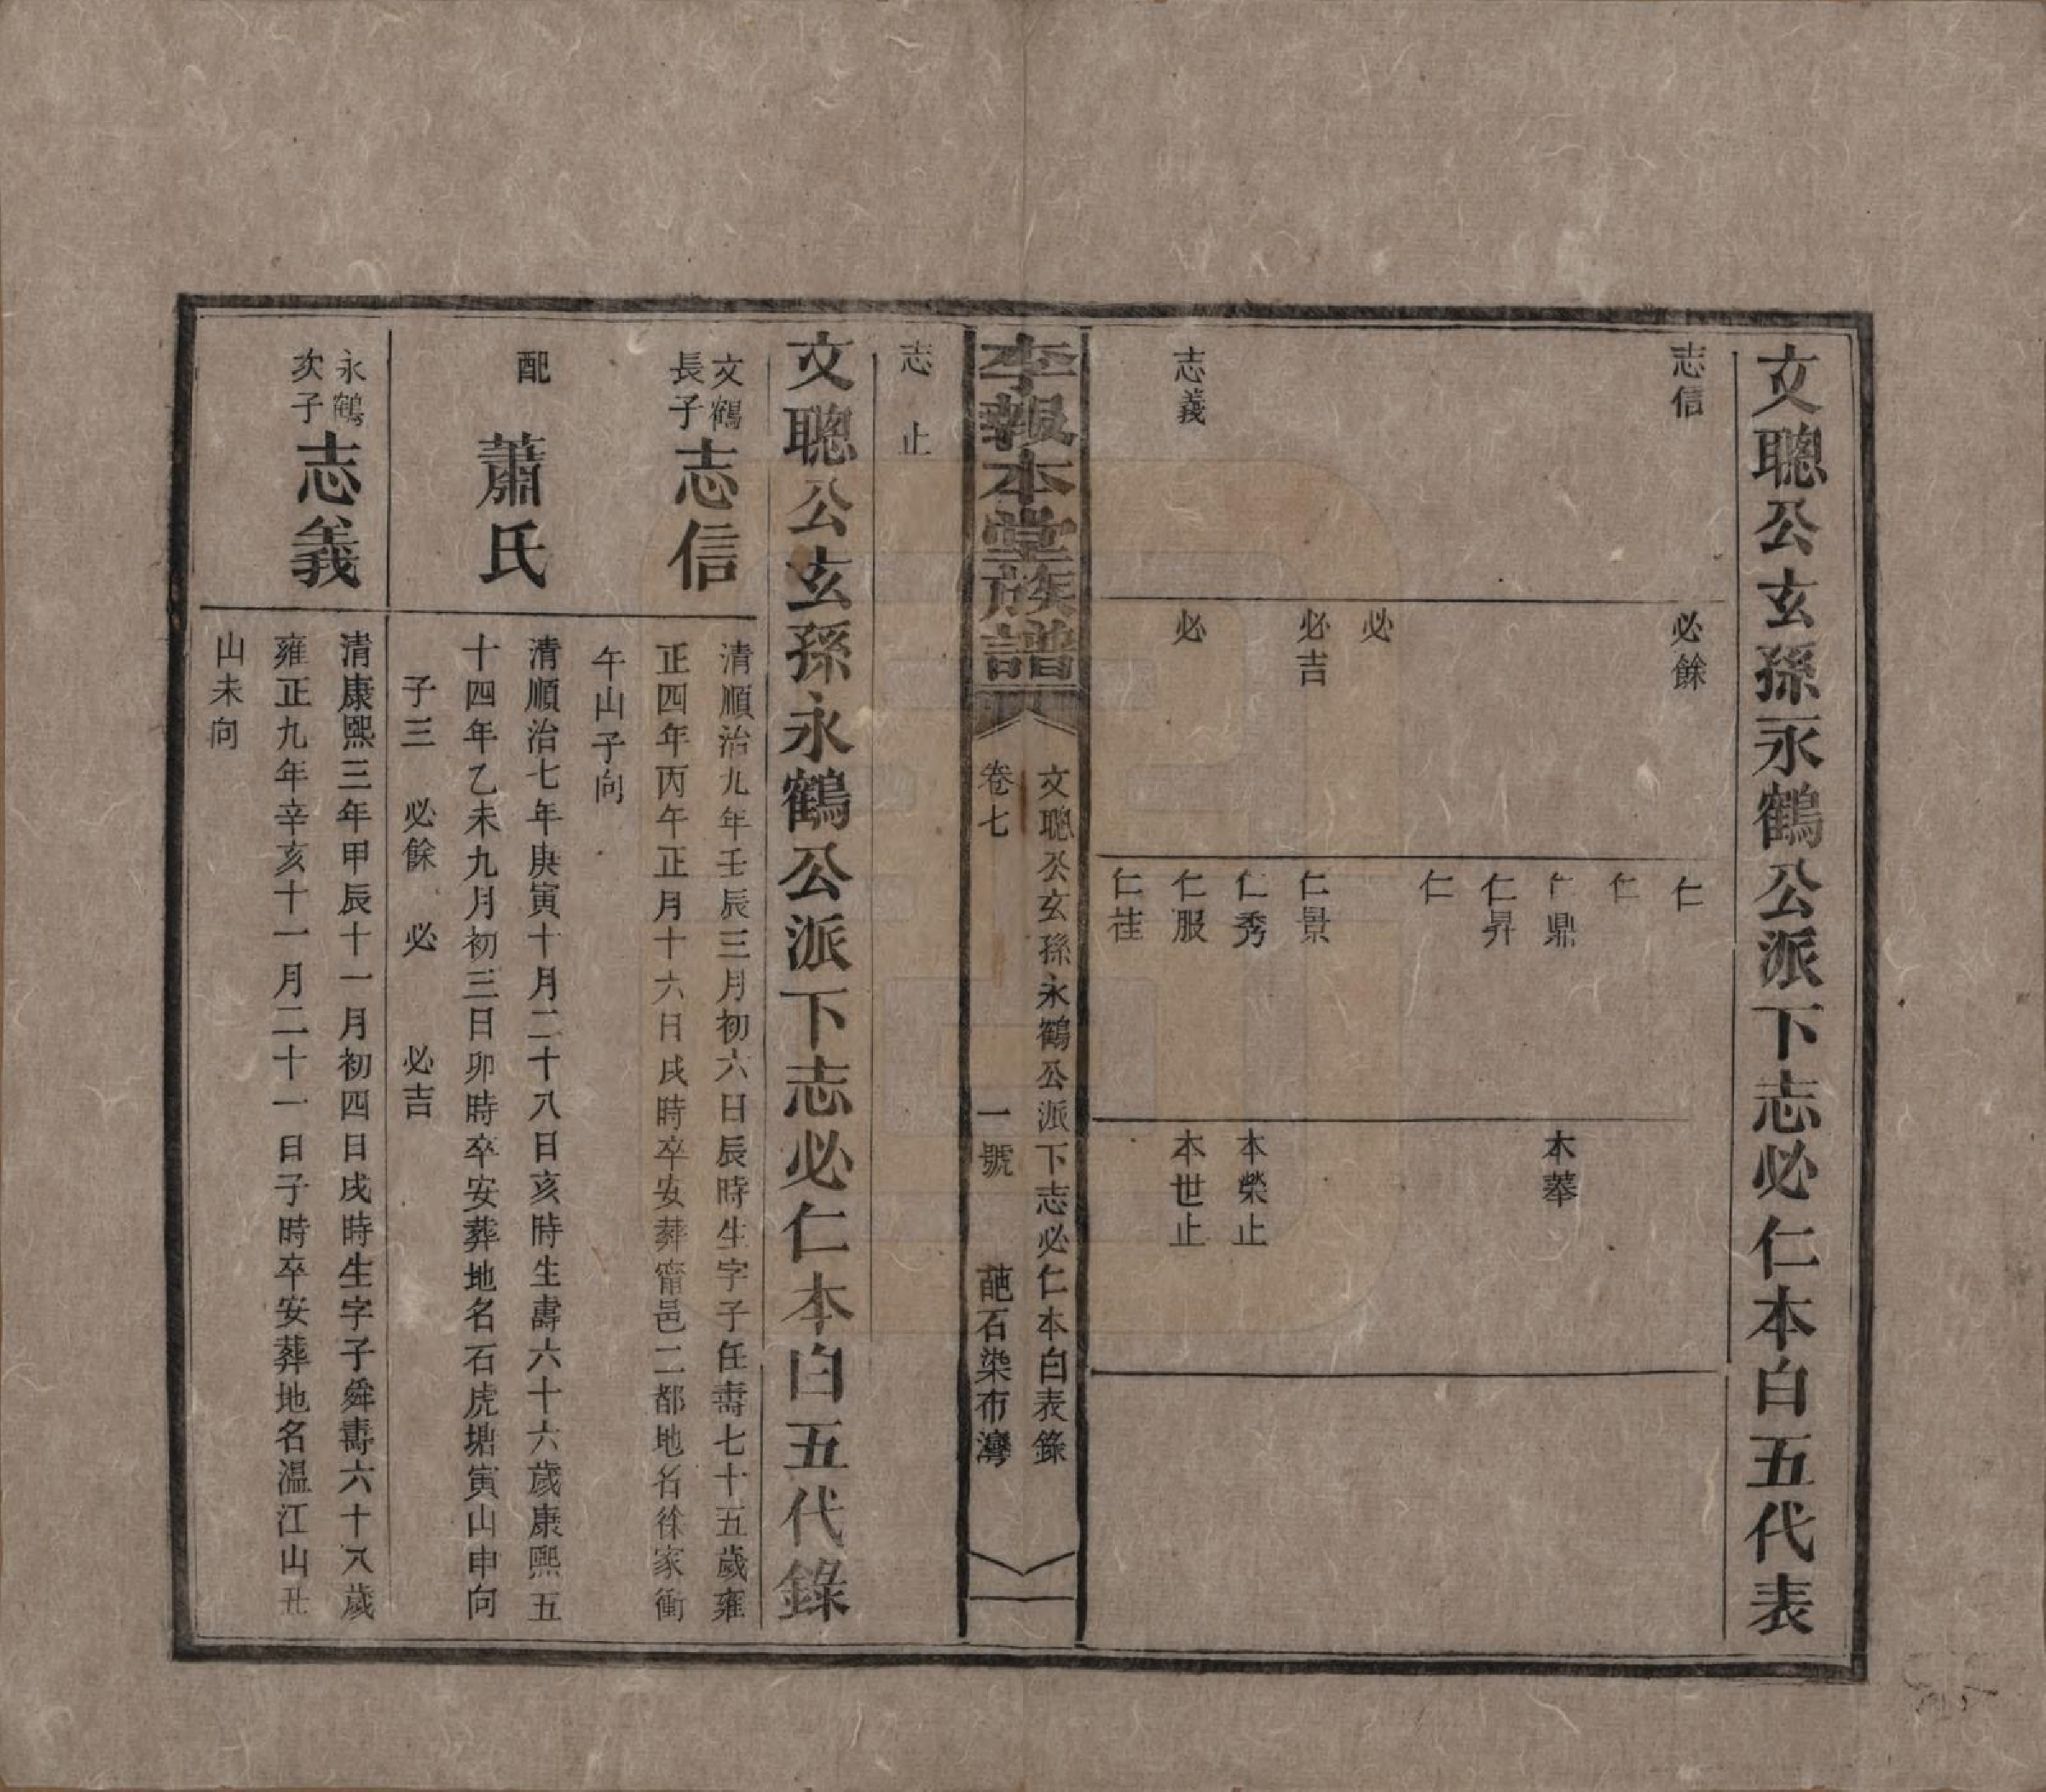 文聰公玄孫永鶴公派下志必仁本白五代表
志信
志義
必餘
必
必吉
必
仁
仁
仁鼎
仁昇
仁
仁景
仁秀
仁服
仁桂
本華
本榮止
本世止
文聰公玄孫永鶴公派下志必仁本白表錄
李報本堂族譜
卷七
一號
葩石染布灣
志止
文聰公玄孫永鶴公派下志必仁本白五代錄
文鶴
長子
志信
清順治九年壬辰三月初六日辰時生字子任壽七十五歲雍
正四年丙午正月十六日戌時卒安葬甯邑二都地名徐家衝
午山子向
配
蕭氏
清順治七年庚寅十月二十八日亥時生壽六十六歲康熙五
十四年乙未九月初三日卯時卒安葬地名石虎塘寅山申向
子三 必餘 必 必吉
永鶴
次子
志義
清康熙三年甲辰十一月初四日戌時生字子舜壽六十八歲
雍正九年辛亥十一月二十一日子時卒安葬地名溫江山丑
山未向